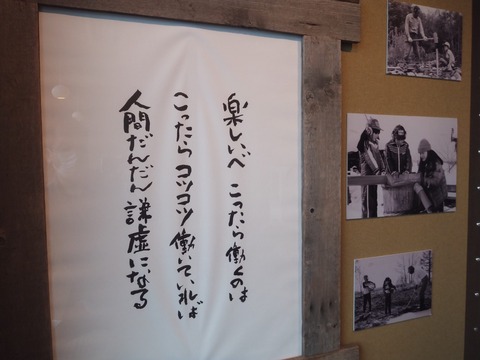 楽しいべ こったら働くのは
こったらコツコツ働いていれば
人間だんだん謙虚になる